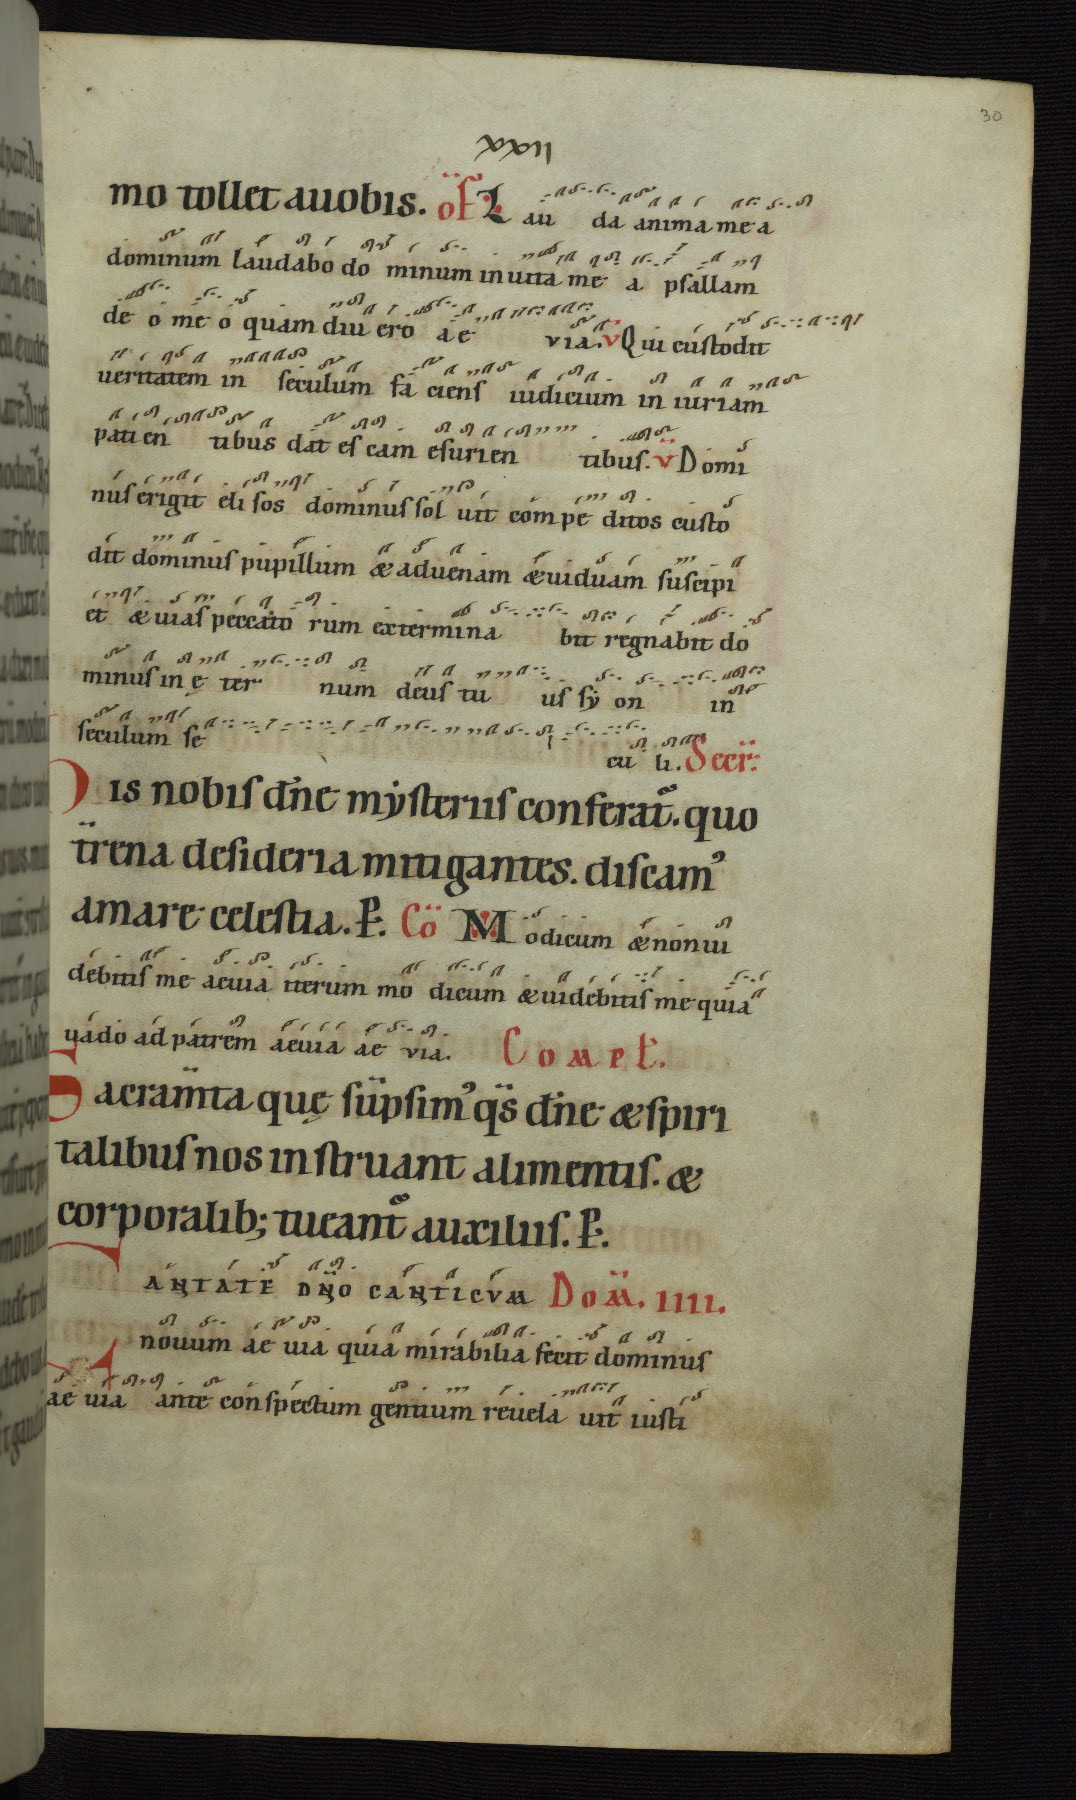 30
xxxii
mo tollet auobis. of̄ Lau da anima mea
dominum laudabo do minum inuita me a psallam
de o meo quamdiu ero ae via. v̄ Qui custodit
ueritatem in seculum fa ciens iudicium iniuriam
patien tibus dat escam esurien tibus. v̄ Domi
nus erigit elisos dominus soluit compe ditos custo
dit dominus pupillum & aduenam & uiduam suscipi
et & uias peccato rum extermina bit regnabit do
minus in ę ter num deus tu us syon in
seculum se cu li. Secr̄:
Dis nobis dn̄e mẏsteriis conferat᷑. quo
tr̄rena desideria mitigantes. discamꝰ
amare celestia. P. Co᷑ Modicum & non ui
debitis me aeuia iterum modicum & uidebitis me quia
uado ad patrem aeuia ae via. Compl̄.
Sacram̄ta quę sūpsimꝰ qs̄ dn̄e & spiri
talibus nos instruant alimentis. &
corporalib; tueant᷑ auxiliis. P.
CANTATE DN̄O CANTICVM Dom̄. IIII.
nouum ae uia quia mirabilia fecit dominus
ae uia ante conspectum gentium reuela uit iusti